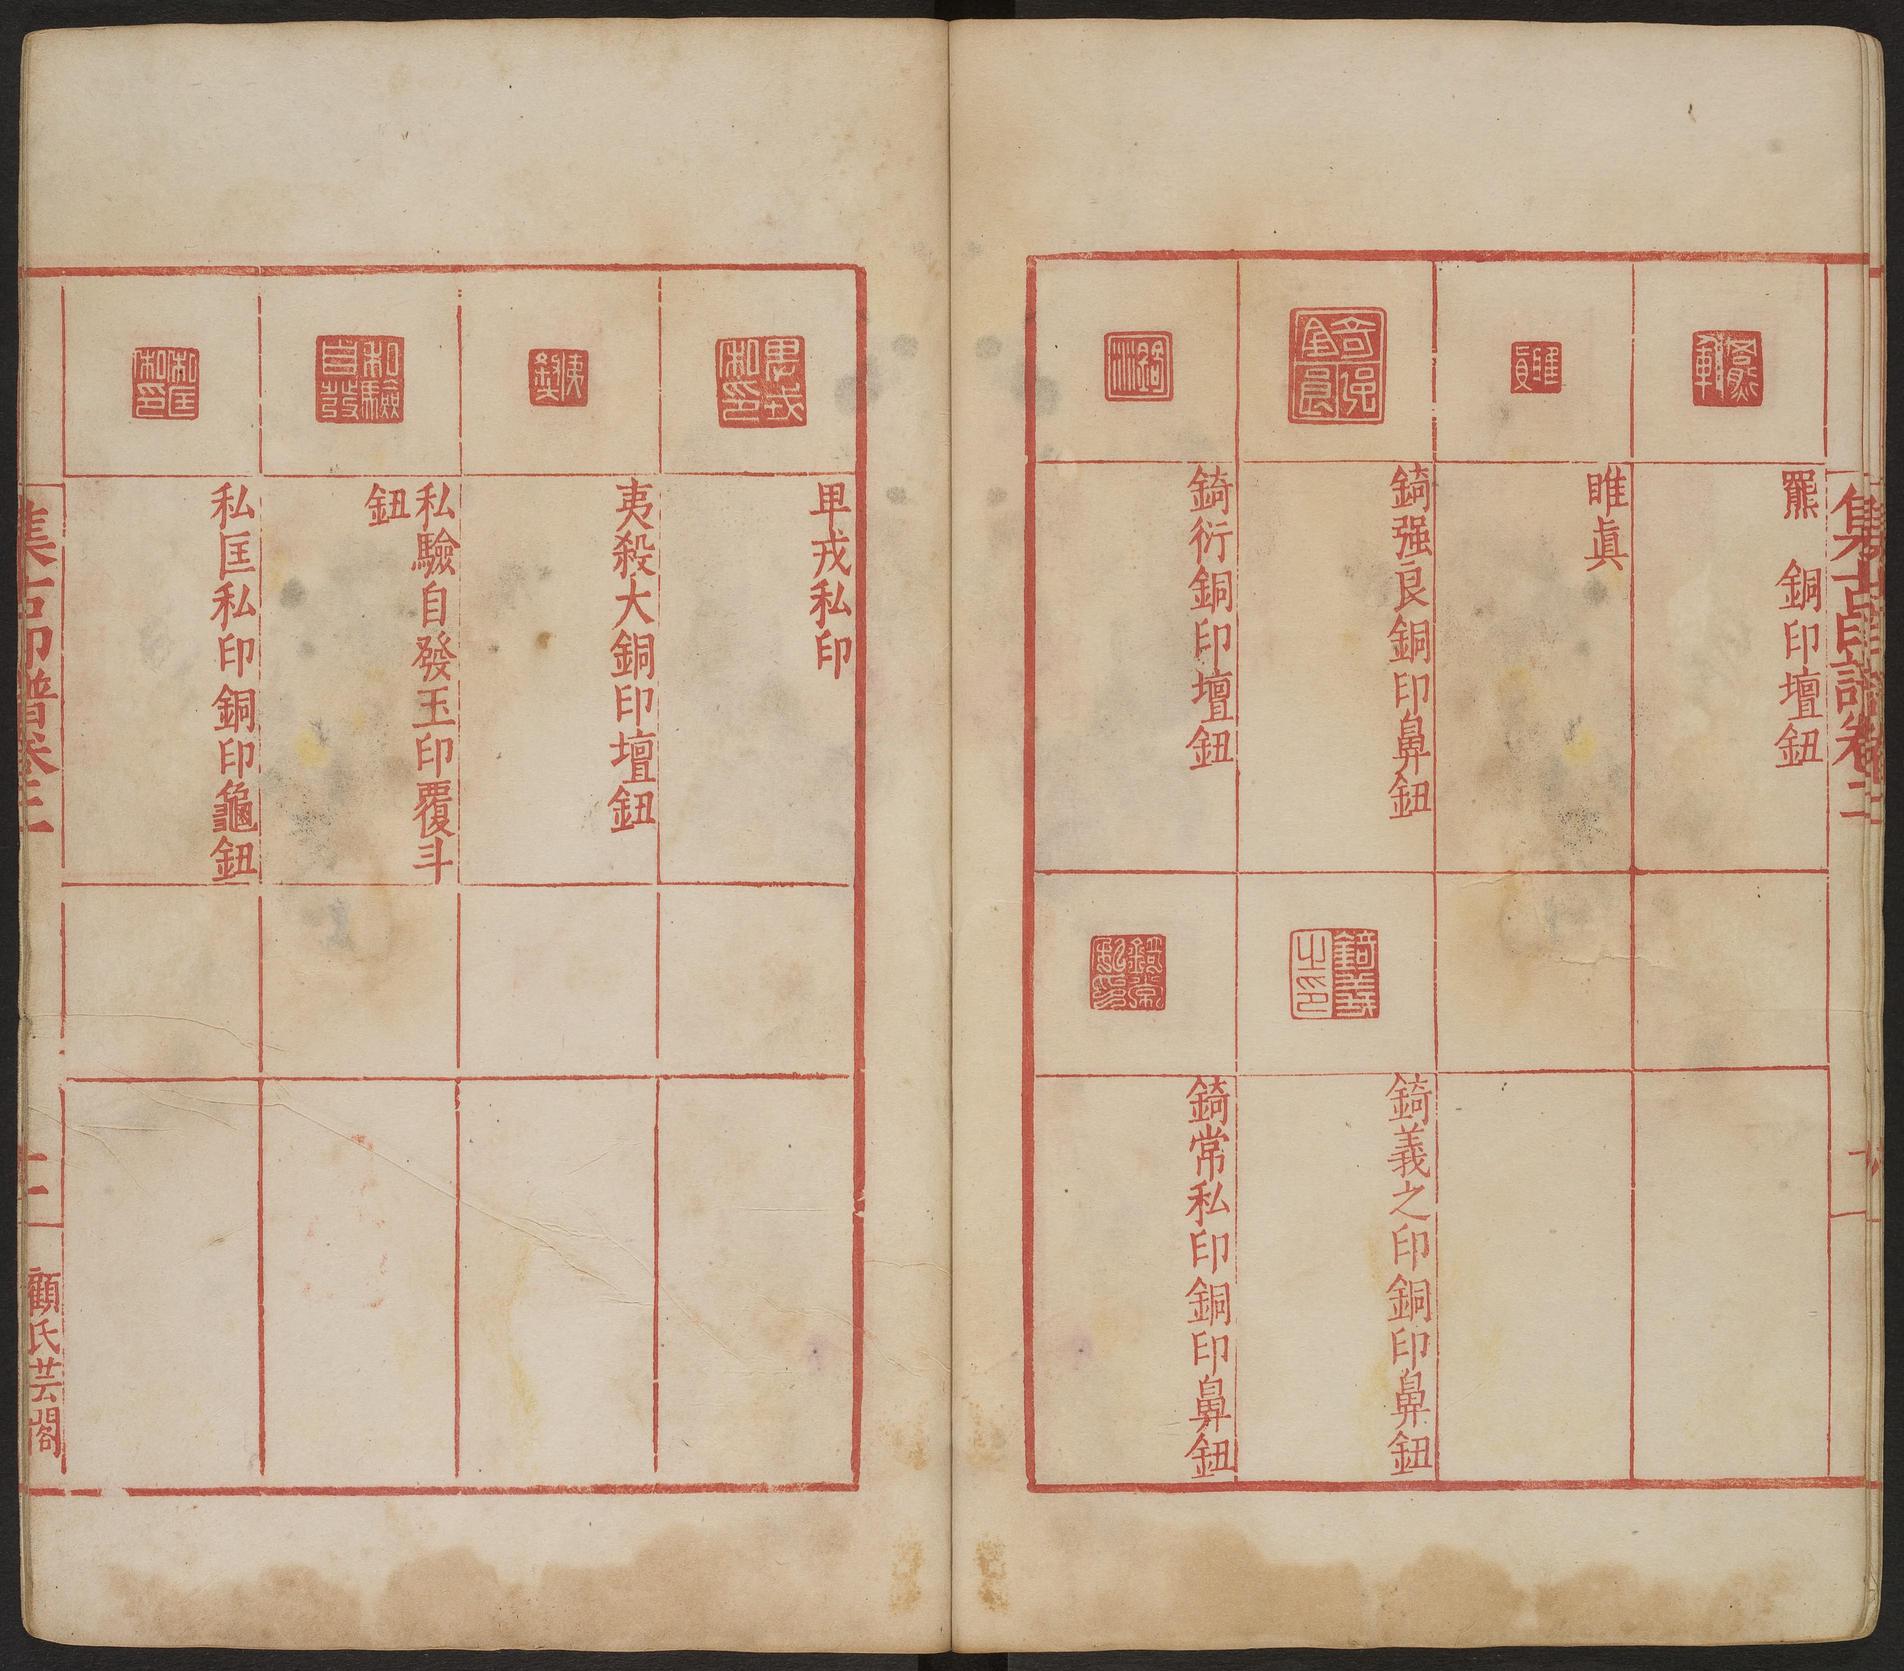 集古印譜卷二
羆　銅印壇鈕
睢眞
錡强良銅印鼻鈕
錡義之印銅印鼻鈕
錡衍銅印壇鈕
錡常私印銅印鼻鈕
甲戎私印
夷殺大銅印壇鈕
私驗自發玉印覆斗
鈕
私匡私印銅印龜鈕
集古印譜卷二
顧氏芸閣